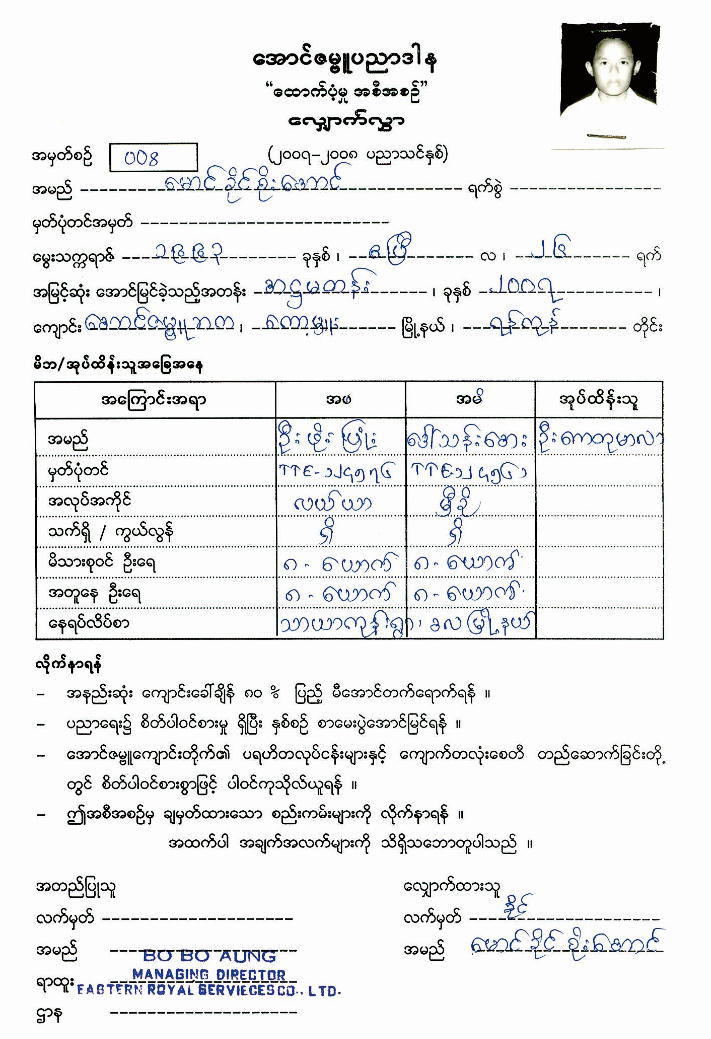 အောင်ဇမ္ဗူပညာဒါန
“ထောက်ပံ့မှု အစီအစဉ်”
လျှောက်လွှာ
အမှတ်စဉ် 008 (၂၀၀၇–၂၀၀၈ ပညာသင်နှစ်)
အမည် မောင်ခိုင်စိုးအောင် ရက်စွဲ
မှတ်ပုံတင်အမှတ်
မွေးသက္ကရာဇ် ၁၉၉၃ ခုနှစ် ၊ ဧပြီ လ ၊ ၂၄ ရက်
အမြင့်ဆုံး အောင်မြင်ခဲ့သည့်အတန်း အဋ္ဌမတန်း ၊ ခုနှစ် ၂၀၀၇ ၊
ကျောင်း အောင်ဇမ္ဗူ ၊ ကော့မှူး မြို့နယ် ၊ ရန်ကုန် တိုင်း
မိဘ/အုပ်ထိန်းသူအခြေအနေ
အကြောင်းအရာ အဖ အမိ အုပ်ထိန်းသူ
အမည် ဦးဖိုးပြုံး ဒေါ်သန်းဆေး ဦးကေတုမာလာ
မှတ်ပုံတင်
အလုပ်အကိုင် လယ်ယာ မှီခို
သက်ရှိ / ကွယ်လွန် ရှိ ရှိ
မိသားစုဝင် ဦးရေ ၈ - ယောက် ၈ - ယောက်
အတူနေ ဦးရေ ၈ - ယောက် ၈ - ယောက်
နေရပ်လိပ်စာ သာယာကုန်းရွာ၊ ဒလမြို့နယ်
လိုက်နာရန်
– အနည်းဆုံး ကျောင်းခေါ်ချိန် ၈၀ % ပြည့် မီအောင်တက်ရောက်ရန် ။
– ပညာရေး၌ စိတ်ပါဝင်စားမှု ရှိပြီး နှစ်စဉ် စာမေးပွဲအောင်မြင်ရန် ။
– အောင်ဇမ္ဗူကျောင်းတိုက်၏ ပရဟိတလုပ်ငန်းများနှင့် ကျောက်တလုံးစေတီ တည်ဆောက်ခြင်းတို့
တွင် စိတ်ပါဝင်စားစွာဖြင့် ပါဝင်ကုသိုလ်ယူရန် ။
– ဤအစီအစဉ်မှ ချမှတ်ထားသော စည်းကမ်းများကို လိုက်နာရန် ။
အထက်ပါ အချက်အလက်များကို သိရှိသဘောတူပါသည် ။
အတည်ပြုသူ လျှောက်ထားသူ
လက်မှတ် လက်မှတ် ခိုင်
အမည် BO BO AUNG အမည် မောင်ခိုင်စိုးအောင်
ရာထူး MANAGING DIRECTOR
EASTERN ROYAL SERVIECES CO., LTD.
ဌာန